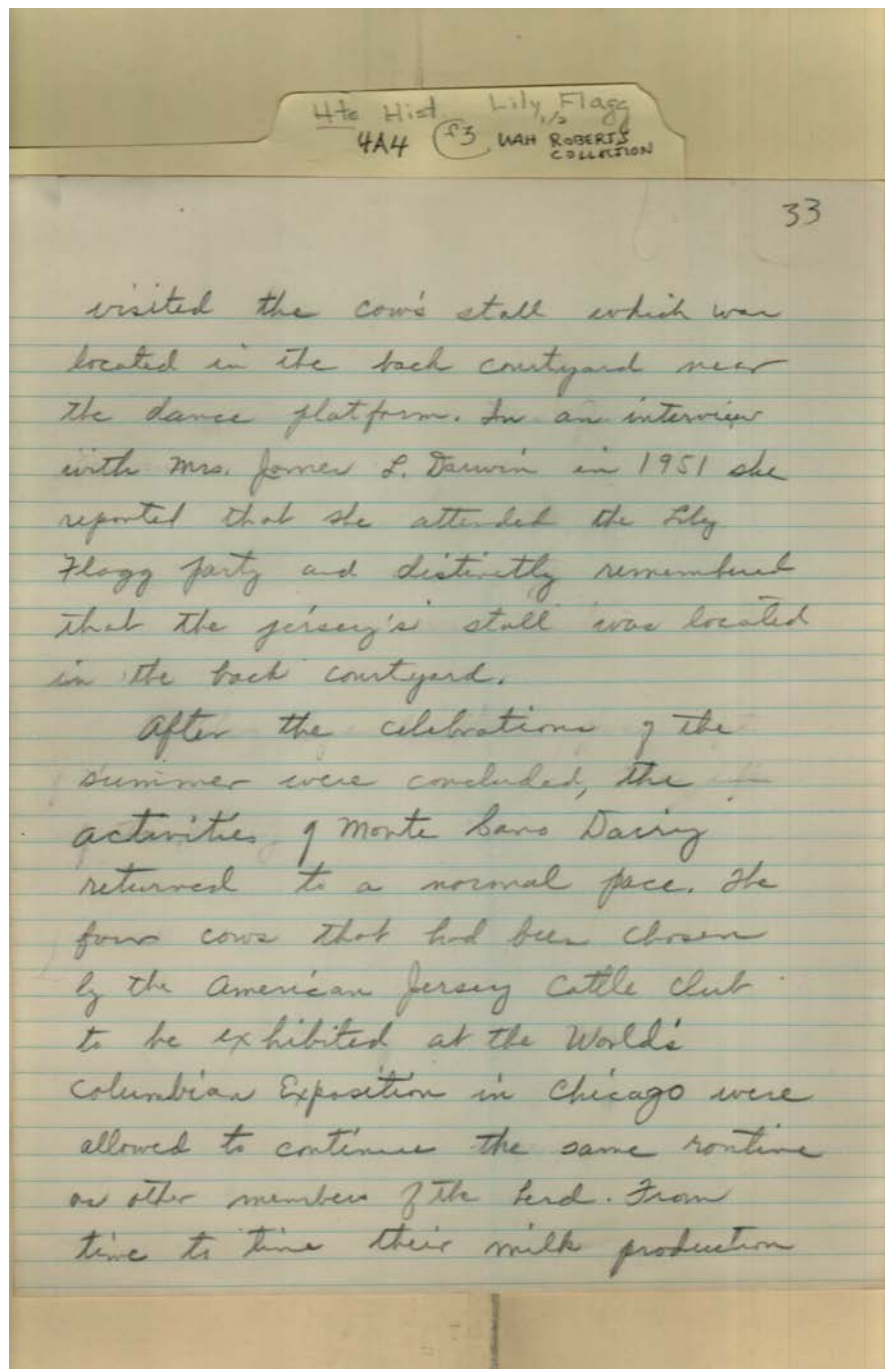 Hts Hist Lily Flagg
1/2
4A4 f3 UAH ROBERTS
COLLECTION
33
visited the cow's stall which was
located in the back courtyard near
the dance platform. In an interview
with Mrs. James L. Darwin in 1951 she
reported that she attended the Lily
Flagg party and distinctly remembered
that the jersey's stall was located
in the back courtyard.
After the celebrations of the
summer were concluded, the
activities of Monte Sano Dairy
returned to a normal pace. The
four cows that had been chosen
by the American Jersey Cattle Club
to be exhibited at the World's
Columbian Exposition in Chicago were
allowed to continue the same routine
as other members of the herd. From
time to time their milk production